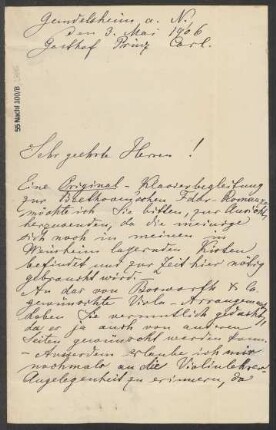 Gundelsheim a. N.
den 3. Mai 1906
Gasthof Prinz Carl.
55 Nachl 100/B
Sehr geehrte Herren!
Eine Original-Klavierbegleitung
zur Beethovenschen Fdur-Romanze
möchte ich Sie bitten, zur Ansicht
herzusenden, da die meinige
sich noch in meinen in
lagernden Kisten
befindet und zur Zeit hier nötig
gebraucht wird. –
An das von Bosworth & Co.
gewünschte Viola-Arrangement
haben Sie vermutlich gedacht,
da er ja auch von anderen
Seiten gewünscht werden kann.
– Ausserdem erlaube ich mir
nochmals an die Violinlehrer
Angelegenheit zu erinnern, da